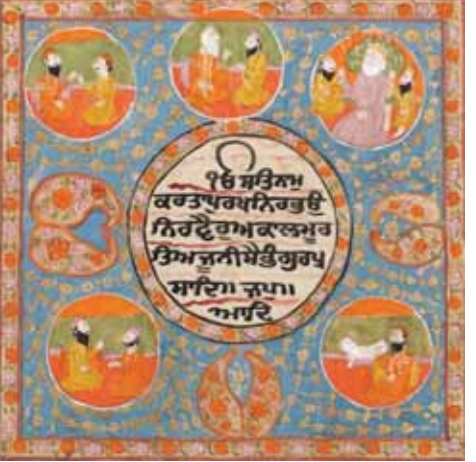 ੴ ਸਤਿਨਾਮੁ
ਕਰਤਾਪੁਰਖੁਨਿਰਭਉ
ਨਿਰਵੈਰੁਅਕਾਲਮੂਰ
ਤਿਅਜੂਨੀਸੈਭੰਗੁਰਪ੍ਰ
ਸਾਦਿ॥ ਜਪੁ॥
ਆਦਿ